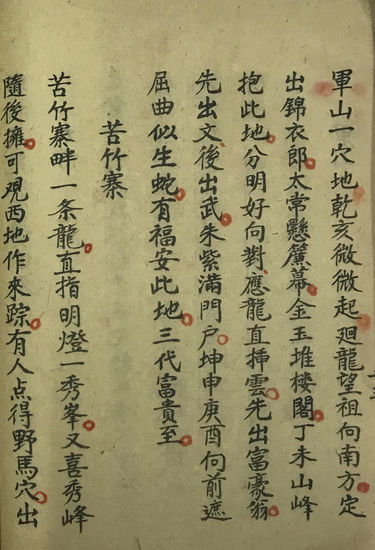 軍山一穴地乾亥微微起廻龍望祖向南方定
出錦衣郎太常懸簾幕金玉堆楼閣丁未山峰
抱此地分明好向對應龍直揷雲先出富豪翁
先出文後出武朱紫滿門户坤申庚酉向前遮
屈曲似生蛇有福安此地三代富貴至
苦竹寨
苦竹寨畔一条龍直指明燈一秀峯又喜秀峰
隨後擁可观西地作來踪有人点得野馬穴出